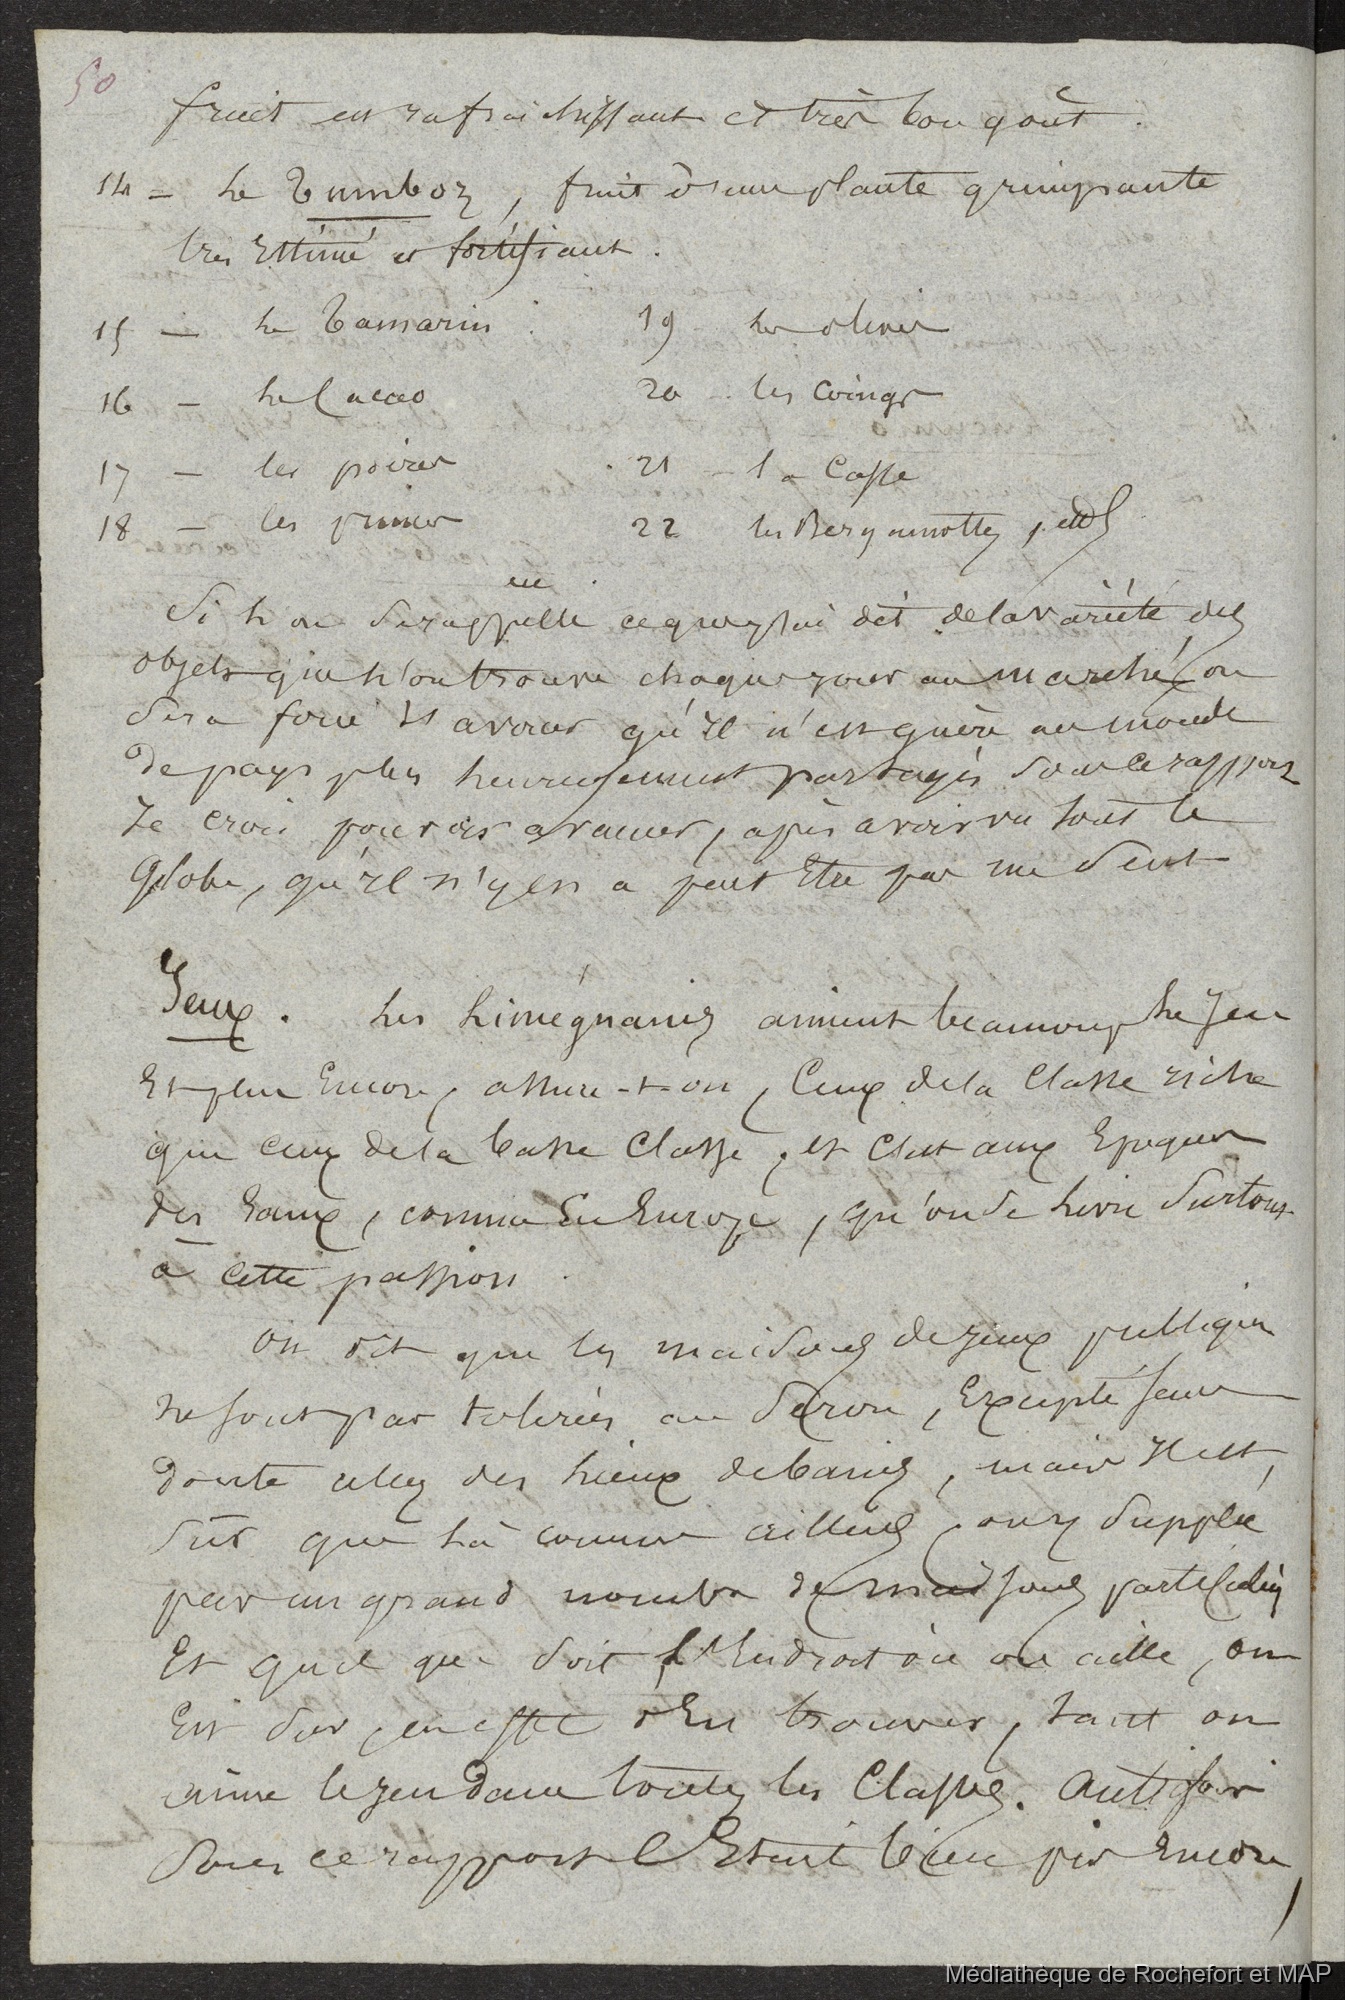 50
fruit est rafraichissant et très bon goût.
14 - Le Tumboz, fruit d'une plante grimpante
très estimé et fortifiant.
15 - Le Tamarin. 19 - Les olives
16 - Le Cacao 20 - les Coings
17 - les poires 21 - la Casse
18 - les prunes 22 les Bergamottes, etc
en
Si l'on se rappelle ce que j'ai dit de la variété des
objets que l'on trouve chaque jour au marché, on
sera forcé d'avouer qu'il n'est guère au monde
de pays plus heureusement partagés sous ce rapport
Je crois pouvoir avancer, après avoir vu tout le
Globe, qu'il n'y en a peut Etre pas un seul
Jeux. Les Liméguaniens aiment beaucoup le Jeu
Et plus Encore, assure-t-on, Ceux de la Classe riche
que ceux de la basse Classe, et C'est aux Epoques
des Eaux, comme En Europe, qu'on se livre surtout
à cette passion.
On dit que les maisons de jeux publiques
ne sont pas tolérées au Pérou, Excepté sans
doute celles des lieux de bains, mais Il est,
sûr que là comme ailleurs, on y supplée
par un grand nombre de maisons particulières
Et quel que soit l'Endroit où on aille, on
Est sûr, en effet d'En trouver, tant on
aime le jeu dans toutes les Classes. Autrefois
sous ce rapport C'Etait bien pis Encore,
Médiathèque de Rochefort et MAP